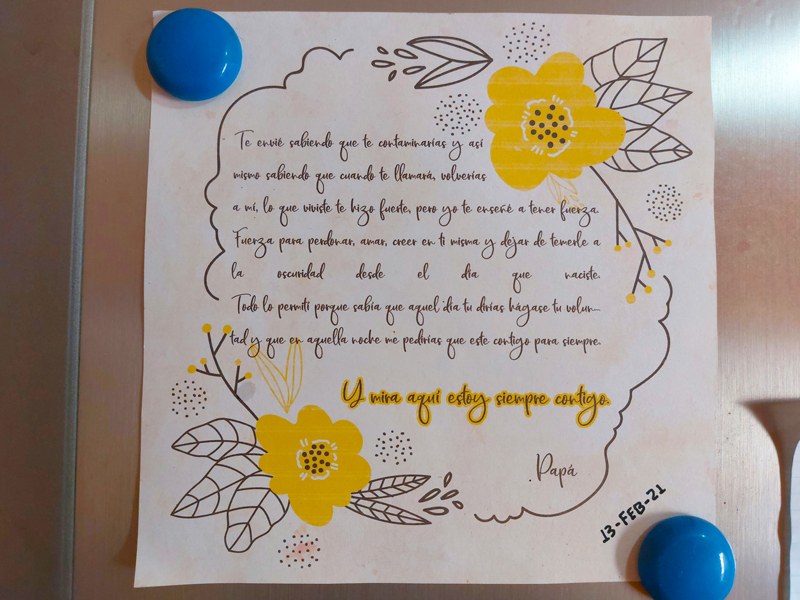 Te envié sabiendo que te contaminarías y así
mismo sabiendo que cuando te llamará, volverías
a mí, lo que viviste te hizo fuerte, pero yo te enseñé a tener fuerza.
Fuerza para perdonar, amar, creer en ti misma y dejar de temerle a
la oscuridad desde el día que naciste.
Todo lo permití porque sabía que aquel día tu dirías hágase tu volun-
tad y que en aquella noche me pedirías que este contigo para siempre.
Y mira aquí estoy siempre contigo.
Papá
13-FEB-21